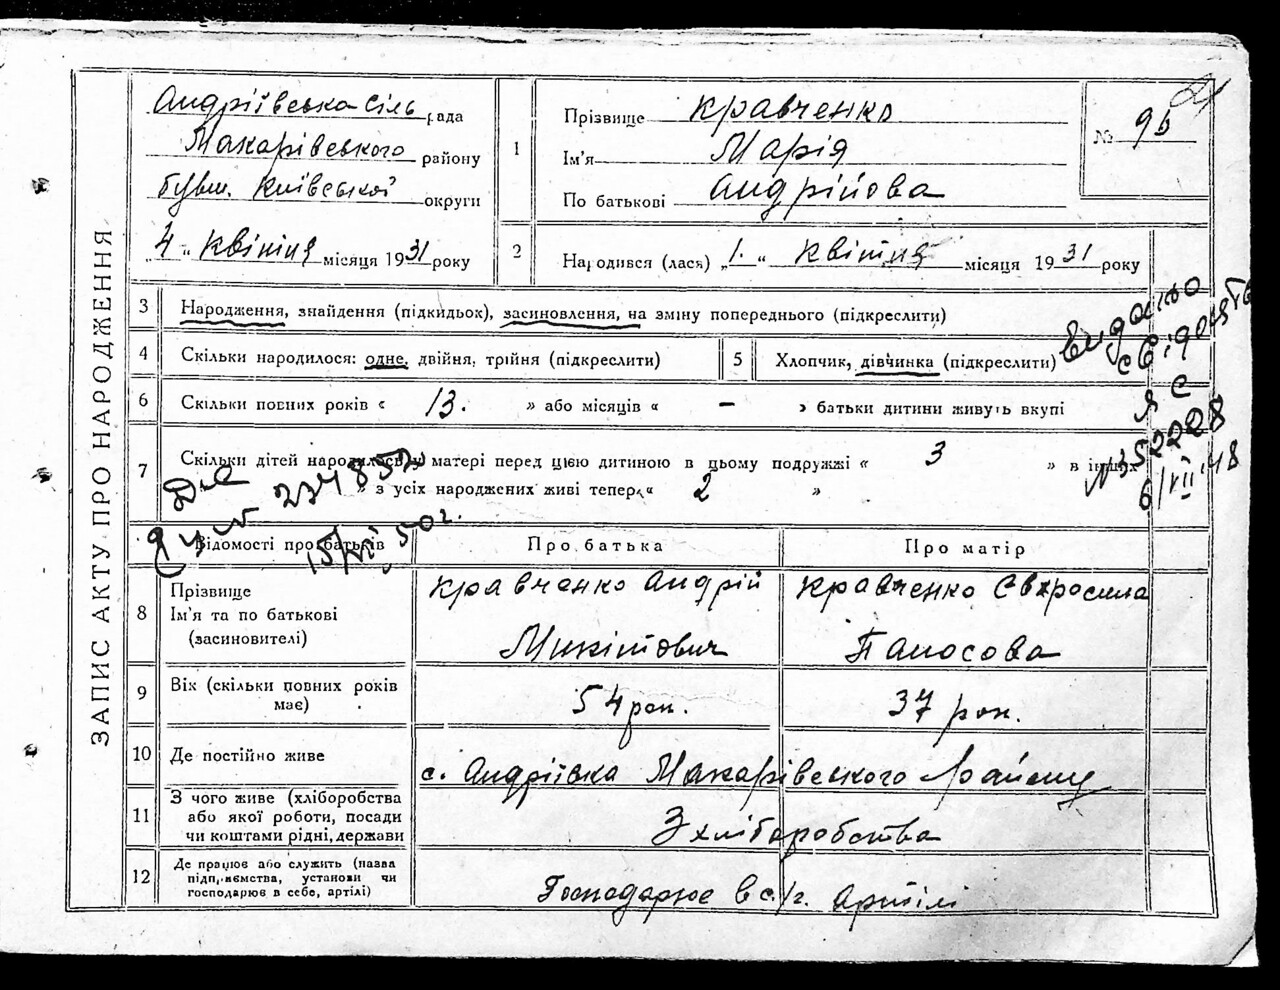 ЗАПИС АКТУ ПРО НАРОДЖЕННЯ
Андріївська сіль рада
Макарівського району
бувш. Київської округи
„4“ квітня місяця 1931 року
1 Прізвище Кравченко
Ім'я Марія
По батькові Андрійова
№ 96
21
2 Народився (лася) „1.“ квітня місяця 1931 року
3 Народження, знайдення (підкидьок), засиновлення, на зміну попереднього (підкреслити)
4 Скільки народилося: одне, двійня, трійня (підкреслити)
5 Хлопчик, дівчинка (підкреслити)
6 Скільки повних років « 13. » або місяців « — » батьки дитини живуть вкупі
7 Скільки дітей народилось у матері перед цією дитиною в цьому подружжі « 3 » в інших
» з усіх народжених живі тепер « 2 »
видано
свідоцтв
ЯС
№ 352228
6/VII 48
274852
50 г.
Відомості про батьків
Про батька
Про матір
8 Прізвище
Ім'я та по батькові
(засиновителі)
Кравченко Андрій
Микітович
Кравченко Євхросина
Панасова
9 Вік (скільки повних років
має)
54 рок.
37 рок.
10 Де постійно живе
с. Андріївка Макарівського району
11 З чого живе (хліборобства
або якої роботи, посади
чи коштами рідні, держави
З хліборобства
12 Де працює або служить (назва
підприємства, установи чи
господарює в себе, артілі)
Господарює в с./г. артілі